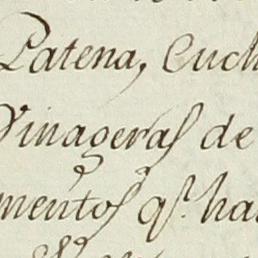 Patena, Cuch
Vinageras de
mentos q.e ha